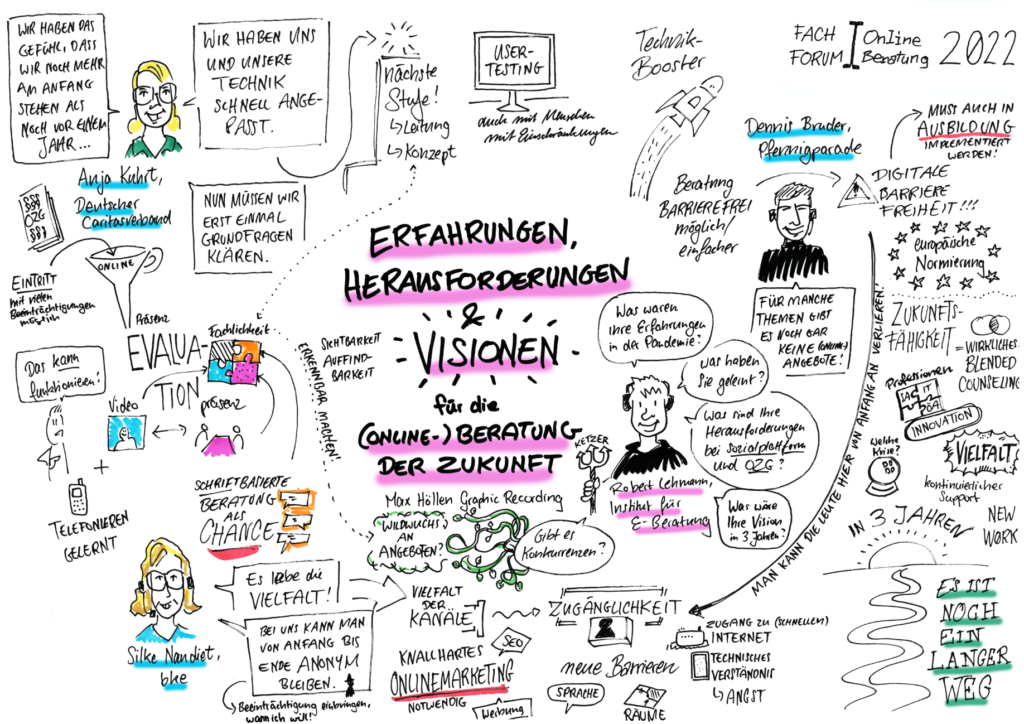 WIR HABEN DAS
GEFÜHL, DASS
WIR NOCH MEHR
AM ANFANG
STEHEN ALS
NOCH VOR EINEM
JAHR...
WIR HABEN UNS
UND UNSERE
TECHNIK
SCHNELL ANGE-
PASST.
Anja Kuhrt,
Deutscher
Caritasverband
NUN MÜSSEN WIR
ERST EINMAL
GRUNDFRAGEN
KLÄREN.
nächste
Stufe!
↳ Leitung
↳ Konzept
USER-
TESTING
auch mit Menschen
mit Einschränkungen
Technik-
Booster
FACH
FORUM
Online
Beratung
2022
§§§
OZG
§§§
ONLINE
EINTRITT
mit vielen
Beeinträchtigungen
möglich
Präsenz
EVALUA-
TION
Fachlichkeit
präsenz
Das kann
funktionieren!
Video
+
TELEFONIEREN
GELERNT
SCHRIFTBASIERTE
BERATUNG
ALS
CHANCE
SICHTBARKEIT
AUFFIND-
BARKEIT
ERKENNBAR MACHEN!
ERFAHRUNGEN,
HERAUSFORDERUNGEN
&
VISIONEN
für die
(ONLINE-) BERATUNG
DER ZUKUNFT
Max Höllen Graphic Recording
Beratung
BARRIEREFREI
möglich/
einfacher
Dennis Bruder,
Pfennigparade
FÜR MANCHE
THEMEN GIBT
ES NOCH GAR
KEINE (ONLINE-)
ANGEBOTE!
MUSS AUCH IN
AUSBILDUNG
IMPLEMENTIERT
WERDEN!
DIGITALE
BARRIERE
FREIHEIT!!!
europäische
Normierung
ZUKUNFTS-
FÄHIGKEIT
= WIRKLICHES
BLENDED
COUNSELING
Professionen
SA
IT
ÖA
INNOVATION
Welche
Krise?
VIELFALT
kontinuierlicher
Support
IN 3 JAHREN
NEW
WORK
ES IST
NOCH
EIN
LANGER
WEG
MAN KANN DIE LEUTE HIER VON ANFANG AN VERLIEREN!
Was waren
Ihre Erfahrungen
in der Pandemie?
Was haben
Sie gelernt?
Was sind Ihre
Herausforderungen
bei Sozialplattform
und OZG?
Was wäre
Ihre Vision
in 3 Jahren?
KETZER
Robert Lehmann,
Institut für
E-Beratung
Gibt es
Konkurrenzen?
WILDWUCHS
AN
ANGEBOTEN?
Silke Naudiet,
bke
Es lebe die
VIELFALT!
BEI UNS KANN MAN
VON ANFANG BIS
ENDE ANONYM
BLEIBEN.
Beeinträchtigung einbringen,
wann ich will!
VIELFALT
DER
KANÄLE
SEO
KNALLHARTES
ONLINEMARKETING
NOTWENDIG
Werbung
ZUGÄNGLICHKEIT
neue Barrieren
SPRACHE
RÄUME
ZUGANG ZU (SCHNELLEM)
INTERNET
TECHNISCHES
VERSTÄNDNIS
↳ ANGST